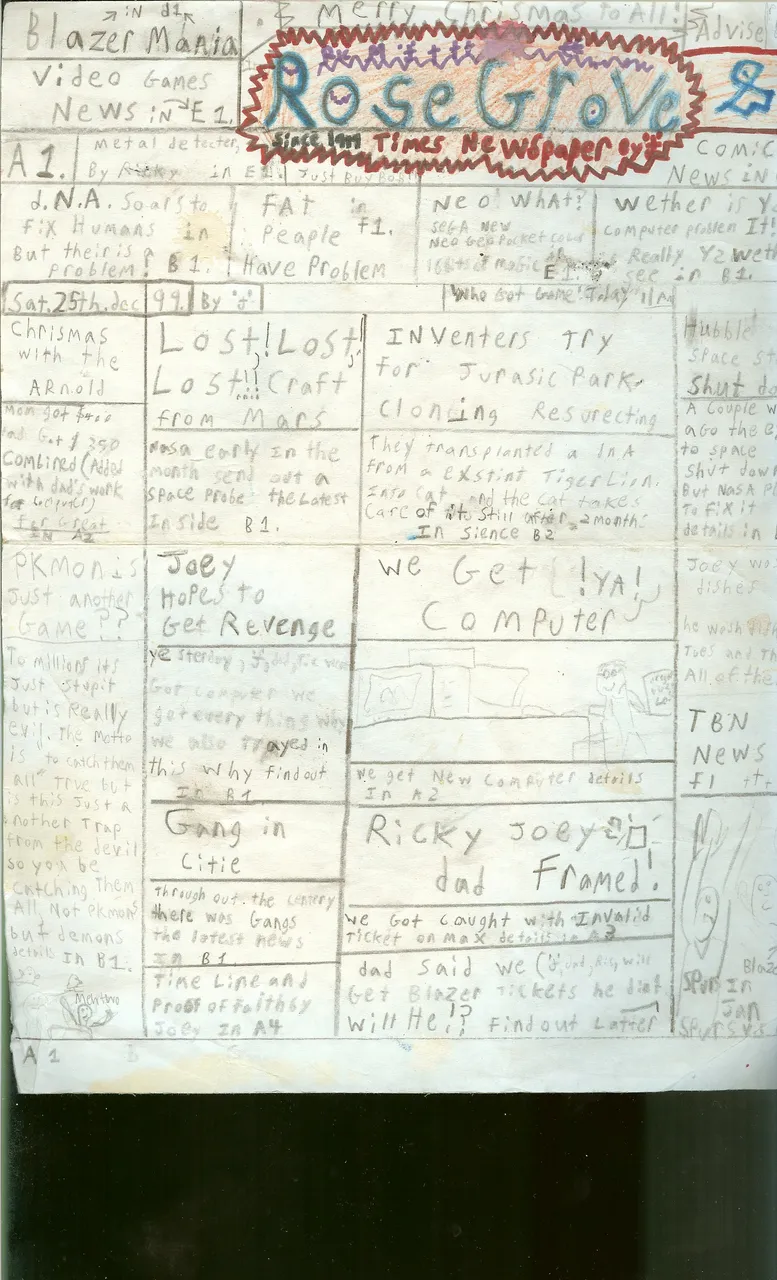 IN d1
Blazer Mania
Video Games
News in E1.
& Merry Christmas to All!
Advise
Rose Grove
&
Since 1999 Times Newspaper By
A1.
metal detecter,
By Ricky in E1.
Just Buy
Comic
News in
d.N.A. Soars to
fix Humans in
But their is a
problem! B1.
FAT in
Peaple F1.
Have Problem
Neo What?
SEGA New
Neo Geo Pocket Color
E1.
Wether is Y
computer problem It!
is Really Y2 weth
see in B1.
Sat. 25th. dec 99. By "J"
Who Got Game! Today
Chrismas
with the
ARnold
Mom got $400
dad Got $250
Combined (Added
with dad's work
for computer)
for Great
IN A2
Lost! Lost!
Lost!! Craft
from Mars
Nasa early In the
month send out a
space probe the latest
Inside B1.
INventers Try
For Jurasic Park
Clonting Resurecting
They transplanted a InA
from a exstint Tiger Lion.
Into cat, and the cat takes
care of it still after 2 months
In sience B2
Hubble
space st
Shut do
A Couple w
ago the
to space
shut down
But NASA Pl
To fix it
details in
PKmon is
Just another
Game??
To millions its
Just stupit
but is Really
evil. The motto
is "to catch them
all" True but
is this Just a
another Trap
from the devil
so you be
catching Them
All, Not PKmons
but demons
details In B1.
Mewtwo
Joey
Hopes to
Get Revenge
yesterday, J, dad, Ric went
Got computer we
got every thing why
we also Trayed in
this why find out
In B1
We Get !YA!
Computer
We get New Computer details
In A2
Joey was
dishes
he wosh dish
Tues and Th
All of the
TBN
News
F1
Gang in
Citie
Through out the centery
there was Gangs
the latest news
In B1
Ricky Joey
dad Framed!
We Got Caught with Invalid
Ticket on Max details in A3
Time Line and
Proof of Faith by
Joey In A4
dad said we (J, dad, Ric, will
Get Blazer Tickets he didt
Will He!? Find out Latter
Blaze
Spur In
Jan
Spurs vs
A1